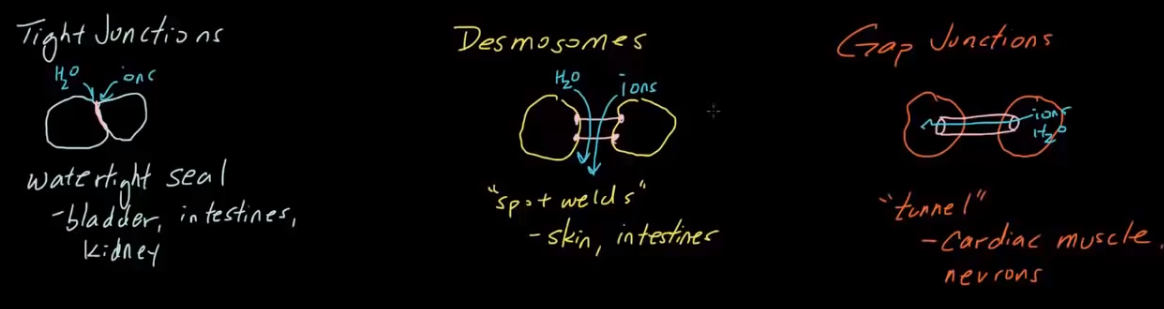 Tight Junctions
H₂O ions
watertight seal
-bladder, intestines,
kidney
Desmosomes
H₂O ions
"spot welds"
-skin, intestines
Gap Junctions
ions
H₂O
"tunnel"
-cardiac muscle,
neurons